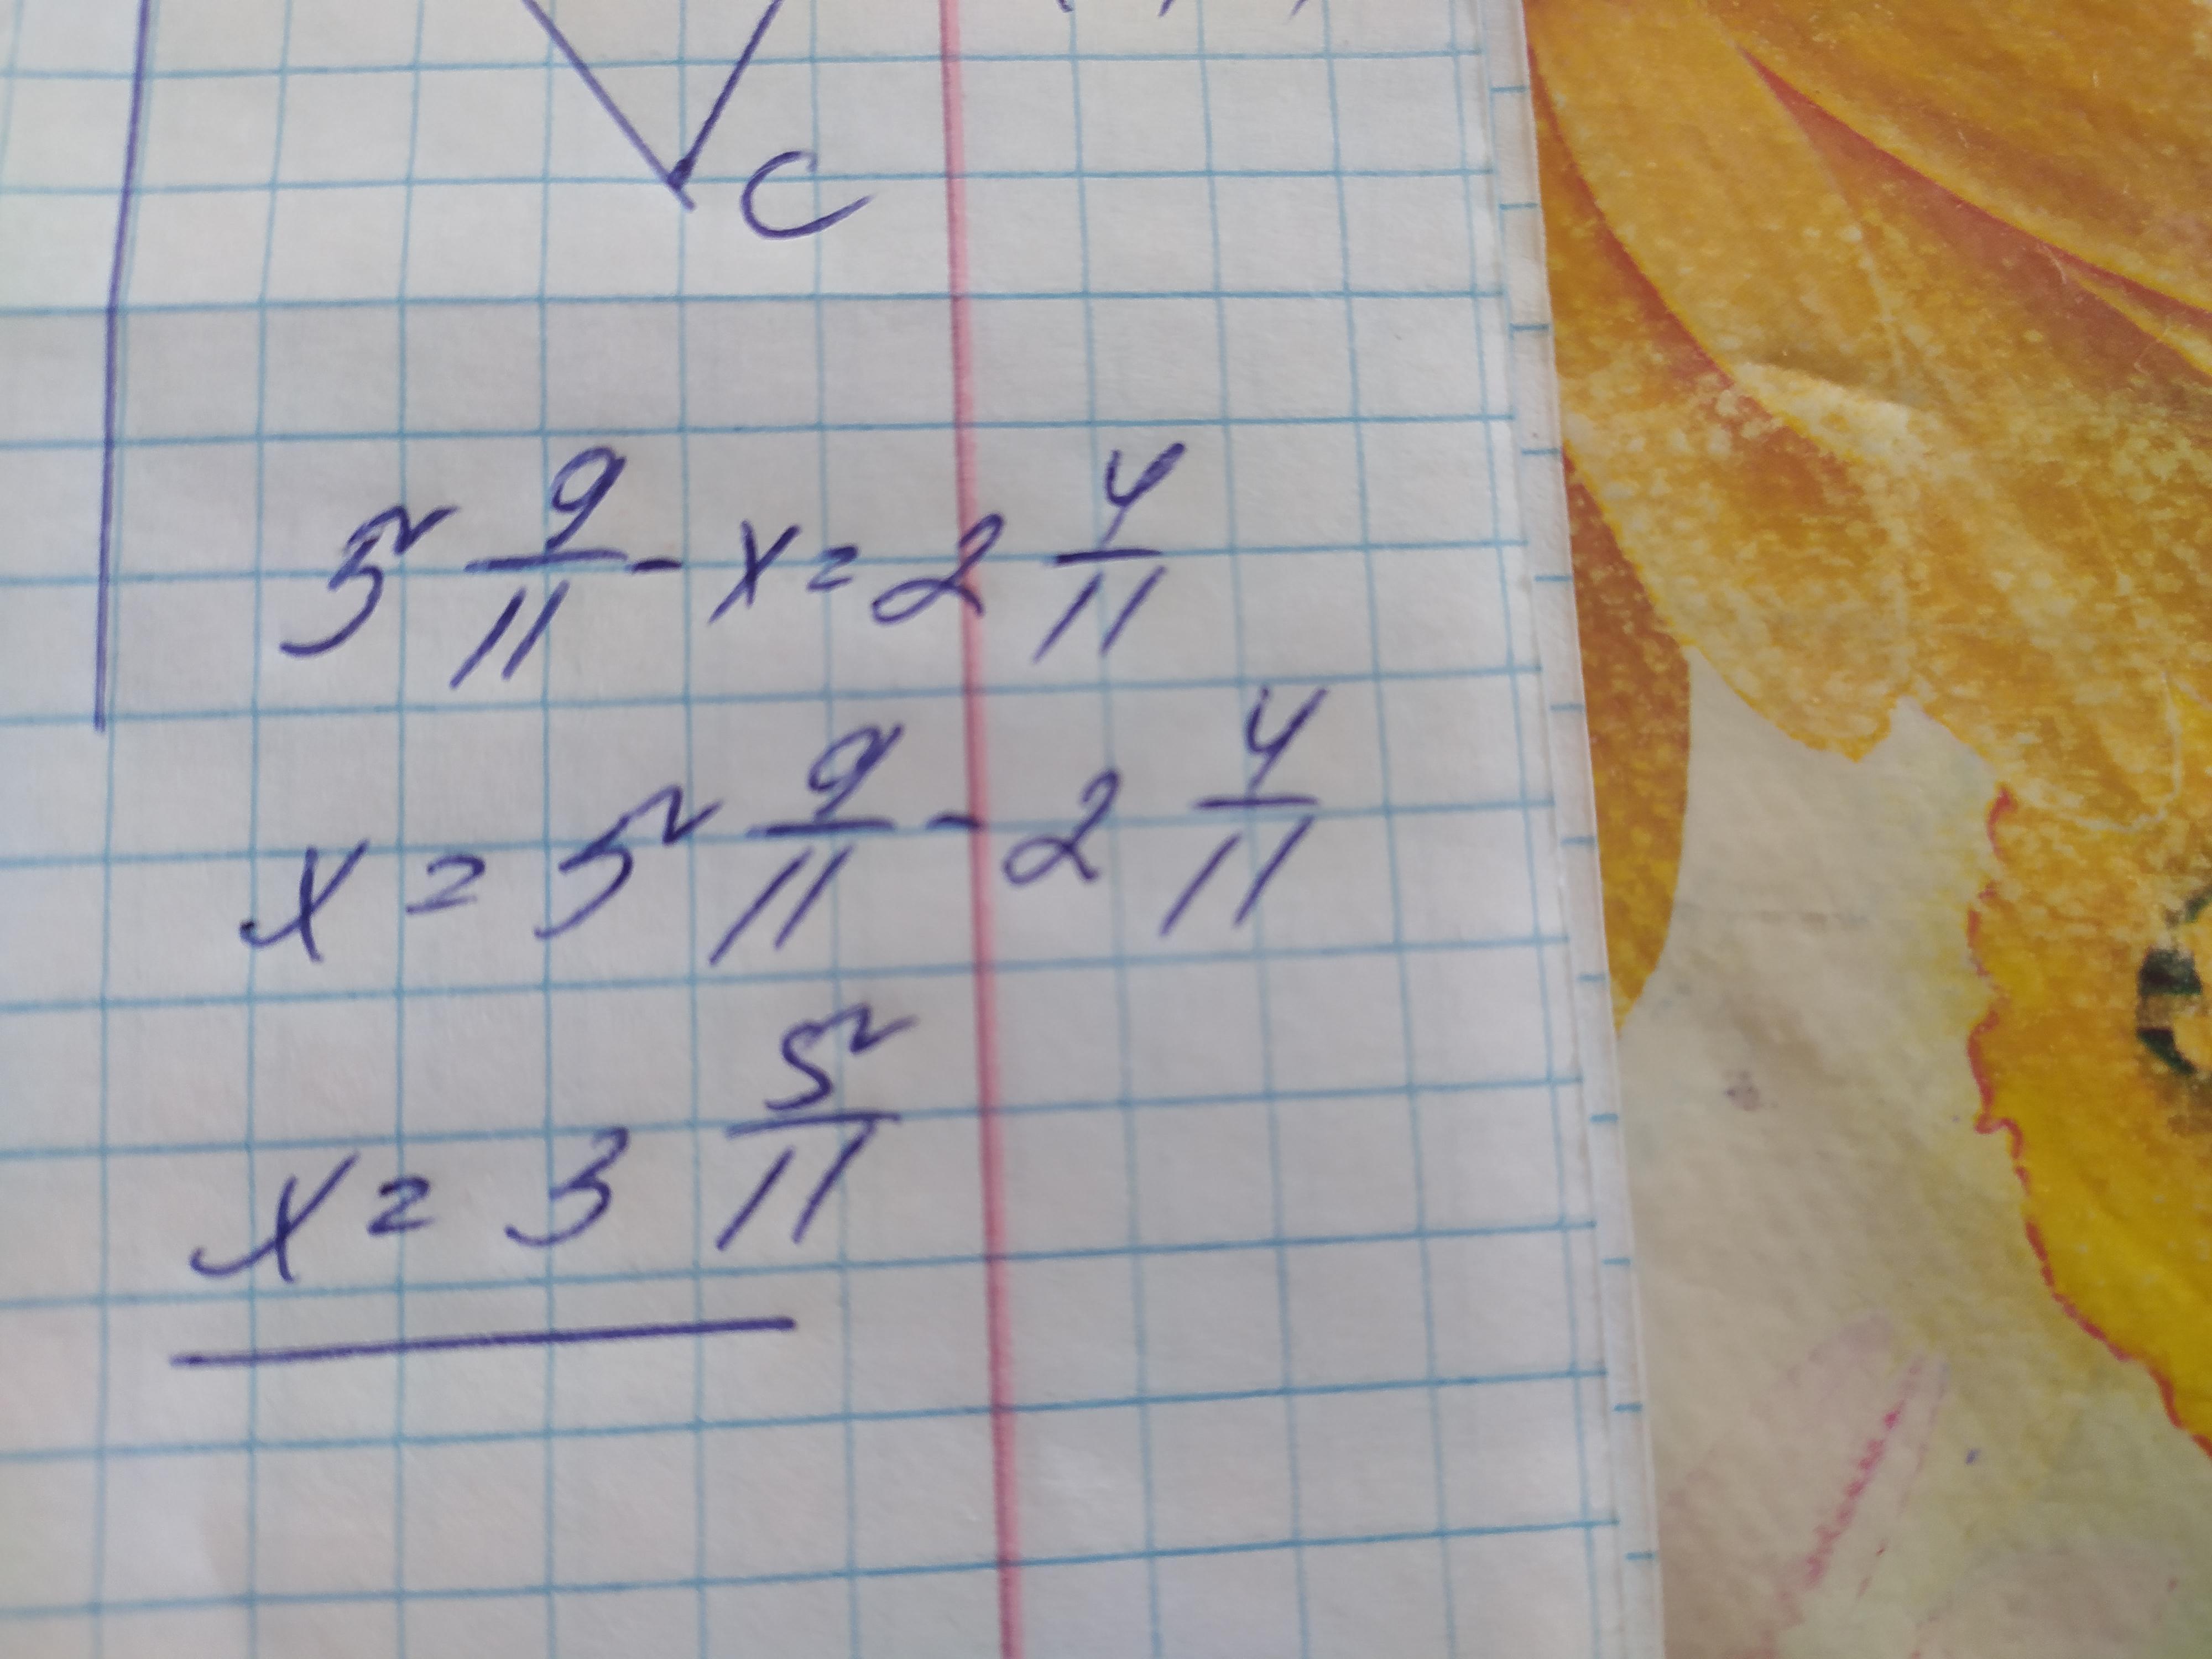 C
5 9/11 - x = 2 4/11
x = 5 9/11 - 2 4/11
x = 3 5/11